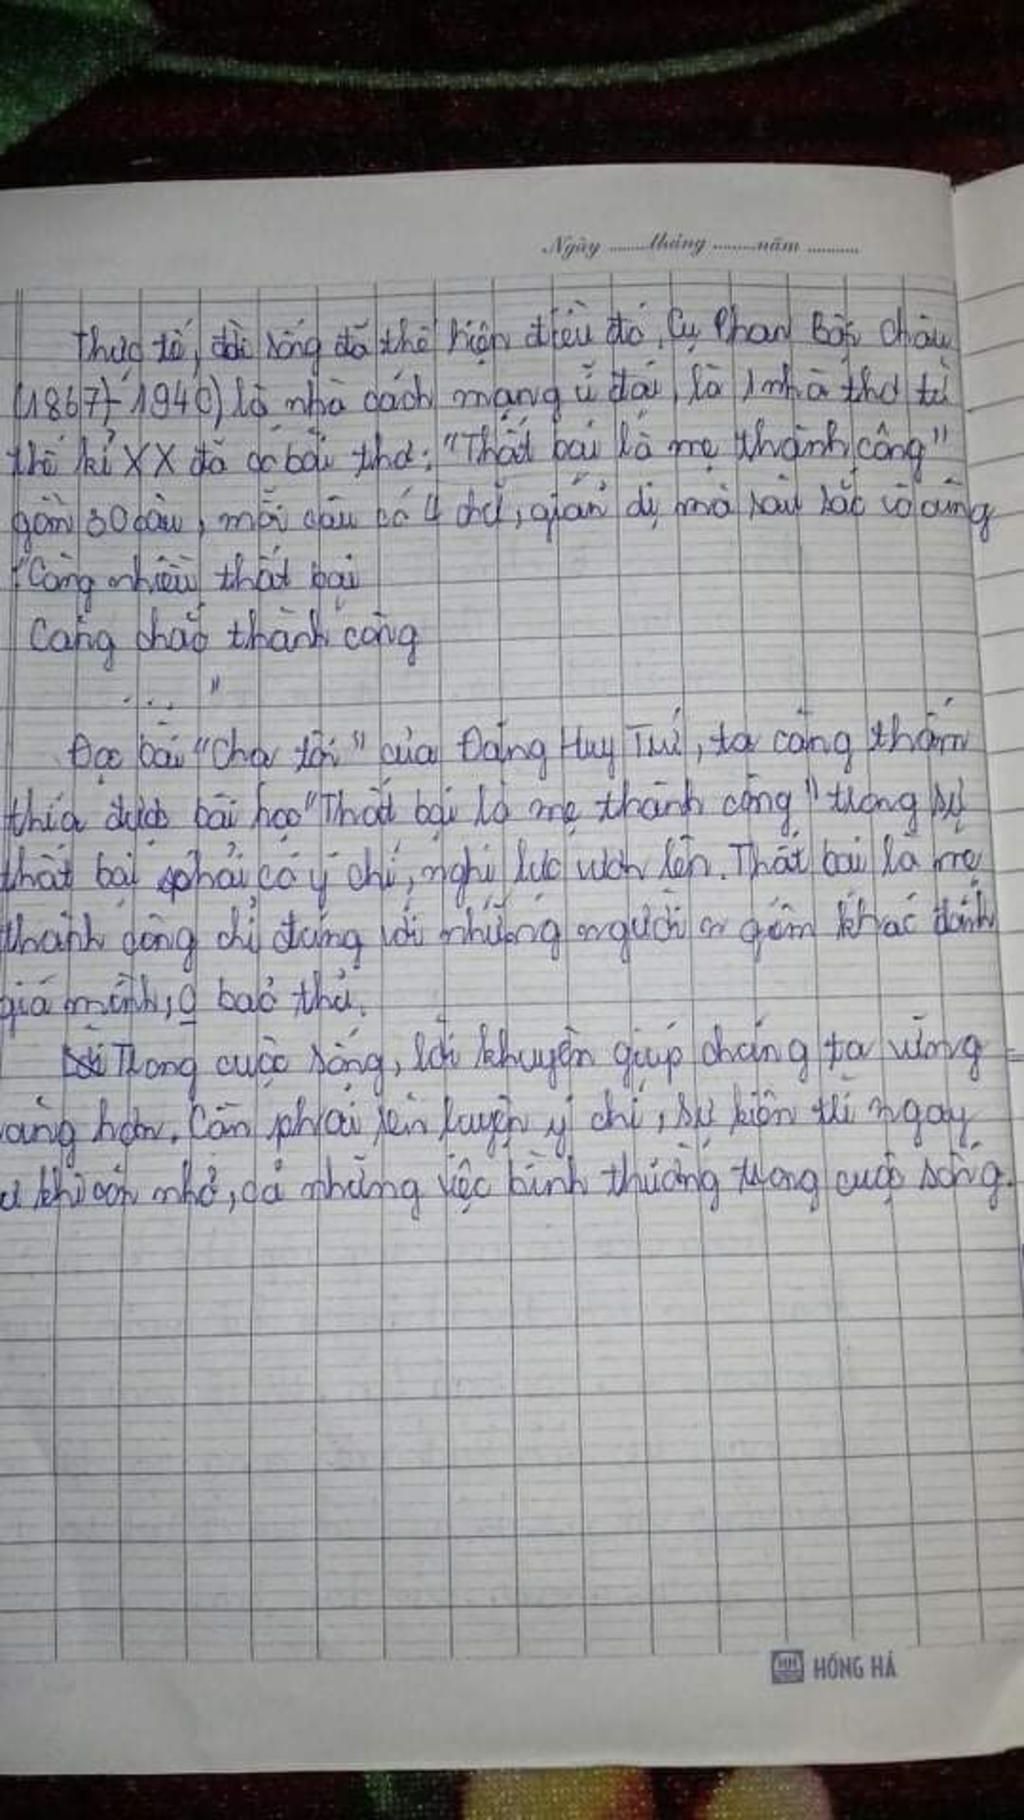 Ngày ........tháng .........năm ...........
Thực tế, đời sống đã thể hiện điều đó. Cụ Phan Bội Châu
(1867-1940) là nhà cách mạng vĩ đại, là 1 nhà thơ từ
thế kỉ XX đã có bài thơ: "Thất bại là mẹ thành công"
gồm 30 câu, mỗi câu có 4 chữ, giản dị mà sâu sắc vô cùng
"Càng nhiều thất bại
Càng chắc thành công
. . . . "
Đọc bài "Cha tôi" của Đặng Huy Trứ, ta càng thấm
thía được bài học "Thất bại là mẹ thành công" trong sự
thất bại phải có ý chí, nghị lực vươn lên. Thất bại là mẹ
thành công chỉ đúng với những người gồm khác đánh
giá mình, bảo thủ.
Trong cuộc sống, lời khuyên giúp chúng ta vững
vàng hơn. Cần phải rèn luyện ý chí, sự kiên trì ngay
từ khi còn nhỏ, cả những việc bình thường trong cuộc sống.
HH HỒNG HÀ